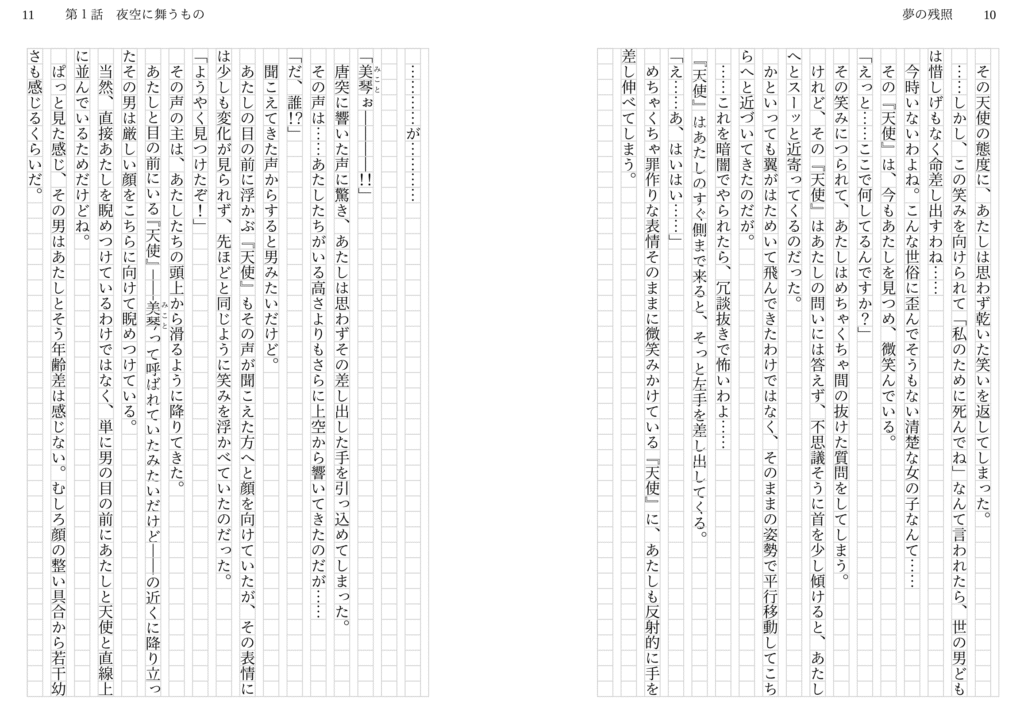 夢の残照
10
その天使の態度に、あたしは思わず乾いた笑いを返してしまった。
……しかし、この笑みを向けられて「私のために死んでね」なんて言われたら、世の男ども
は惜しげもなく命差し出すわね……
今時いないわよね。こんな世俗に歪んでそうもない清楚な女の子なんて……
その『天使』は、今もあたしを見つめ、微笑んでいる。
「えっと……ここで何してるんですか？」
その笑みにつられて、あたしはめちゃくちゃ間の抜けた質問をしてしまう。
けれど、その『天使』はあたしの問いには答えず、不思議そうに首を少し傾けると、あたし
へとスーッと近寄ってくるのだった。
かといっても翼がはためいて飛んできたわけではなく、そのままの姿勢で平行移動してこち
らへと近づいてきたのだが。
……これを暗闇でやられたら、冗談抜きで怖いわよ……
『天使』はあたしのすぐ側まで来ると、そっと左手を差し出してくる。
「え……あ、はいはい……」
めちゃくちゃ罪作りな表情そのままに微笑みかけている『天使』に、あたしも反射的に手を
差し伸べてしまう。
11
第１話　夜空に舞うもの
…………が…………
「美琴ぉ――――！！」
みこと
唐突に響いた声に驚き、あたしは思わずその差し出した手を引っ込めてしまった。
その声は……あたしたちがいる高さよりもさらに上空から響いてきたのだが……
「だ、誰!?」
聞こえてきた声からすると男みたいだけど。
あたしの目の前に浮かぶ『天使』もその声が聞こえた方へと顔を向けていたが、その表情に
は少しも変化が見られず、先ほどと同じように笑みを浮かべていたのだった。
「ようやく見つけたぞ！」
その声の主は、あたしたちの頭上から滑るように降りてきた。
あたしと目の前にいる『天使』――美琴って呼ばれていたみたいだけど――の近くに降り立っ
みこと
たその男は厳しい顔をこちらに向けて睨めつけている。
当然、直接あたしを睨めつけているわけではなく、単に男の目の前にあたしと天使と直線上
に並んでいるためだけどね。
ぱっと見た感じ、その男はあたしとそう年齢差は感じない。むしろ顔の整い具合から若干幼
さも感じるくらいだ。